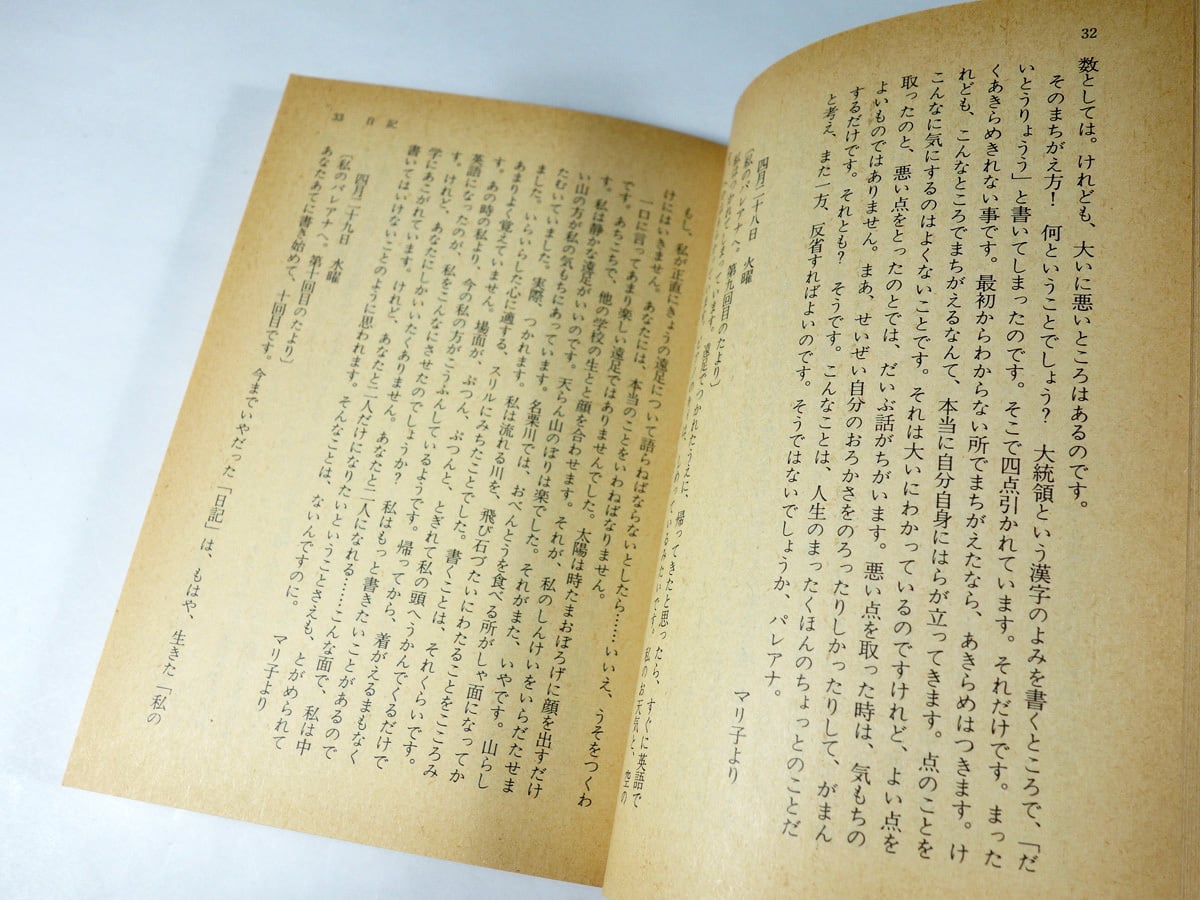 32
数としては。けれども、大いに悪いところはあるのです。
そのまちがえ方！　何ということでしょう？　大統領という漢字のよみを書くところで、「だ
いとうりょうう」と書いてしまったのです。そこで四点引かれています。それだけです。まった
くあきらめきれない事です。最初からわからない所でまちがえたなら、あきらめはつきます。け
れども、こんなところでまちがえるなんて、本当に自分自身にはらが立ってきます。点のことを
こんなに気にするのはよくないことです。それは大いにわかっているのですけれど、よい点を
取ったのと、悪い点をとったのとでは、だいぶ話がちがいます。悪い点を取った時は、気もちの
よいものではありません。まあ、せいぜい自分のおろかさをのろったりしかったりして、がまん
するだけです。それとも？　そうです。こんなことは、人生のまったくほんのちょっとのことだ
と考え、また一方、反省すればよいのです。そうではないでしょうか、パレアナ。
マリ子より
四月二十八日　火曜
（私のパレアナへ。第九回目のたより）
遠足でつかれたうえに、帰ってきたと思ったら、すぐに英語で
私のお天気と、空の
33　日記
もし、私が正直にきょうの遠足について語らねばならないとしたら……いいえ、うそをつくわ
けにはいきません。あなたには、本当のことをいわねばなりません。
一口に言ってあまり楽しい遠足ではありませんでした。太陽は時たまおぼろげに顔を出すだけ
です。あちこちで、他の学校の生とと顔を合わせます。それが、私のしんけいをいらだたせま
す。私は静かな遠足がいいのです。天らん山のぼりは楽でした。それがまた、いやです。山らし
い山の方が私の気もちにあっています。名栗川では、おべんとうを食べる所がしゃ面になってか
たむいていました。実際、つかれます。
ました。いらいらした心に適する、スリルにみちたことでした。書くことは、それくらいです。
あまりよく覚えていません。私は流れる川を、飛び石づたいにわたることをこころみ
す。あの時の私より、今の私の方がこうふんしているようです。帰ってから、着がえるまもなく
英語になったのが、私をこんなにさせたのでしょうか？　私はもっと書きたいことがあるので
す。けれど、あなたにしかいいたくありません。あなたと二人になれる……こんな面で、私は中
学にあこがれています。けれど、あなたと二人だけになりたいということさえも、とがめられて
書いてはいけないことのように思われます。そんなことは、ないんですのに。
マリ子より
四月二十九日　水曜
（私のパレアナへ。第十回目のたより）
あなたあてに書き始めて、十回目です。今までいやだった「日記」は、もはや、生きた「私の